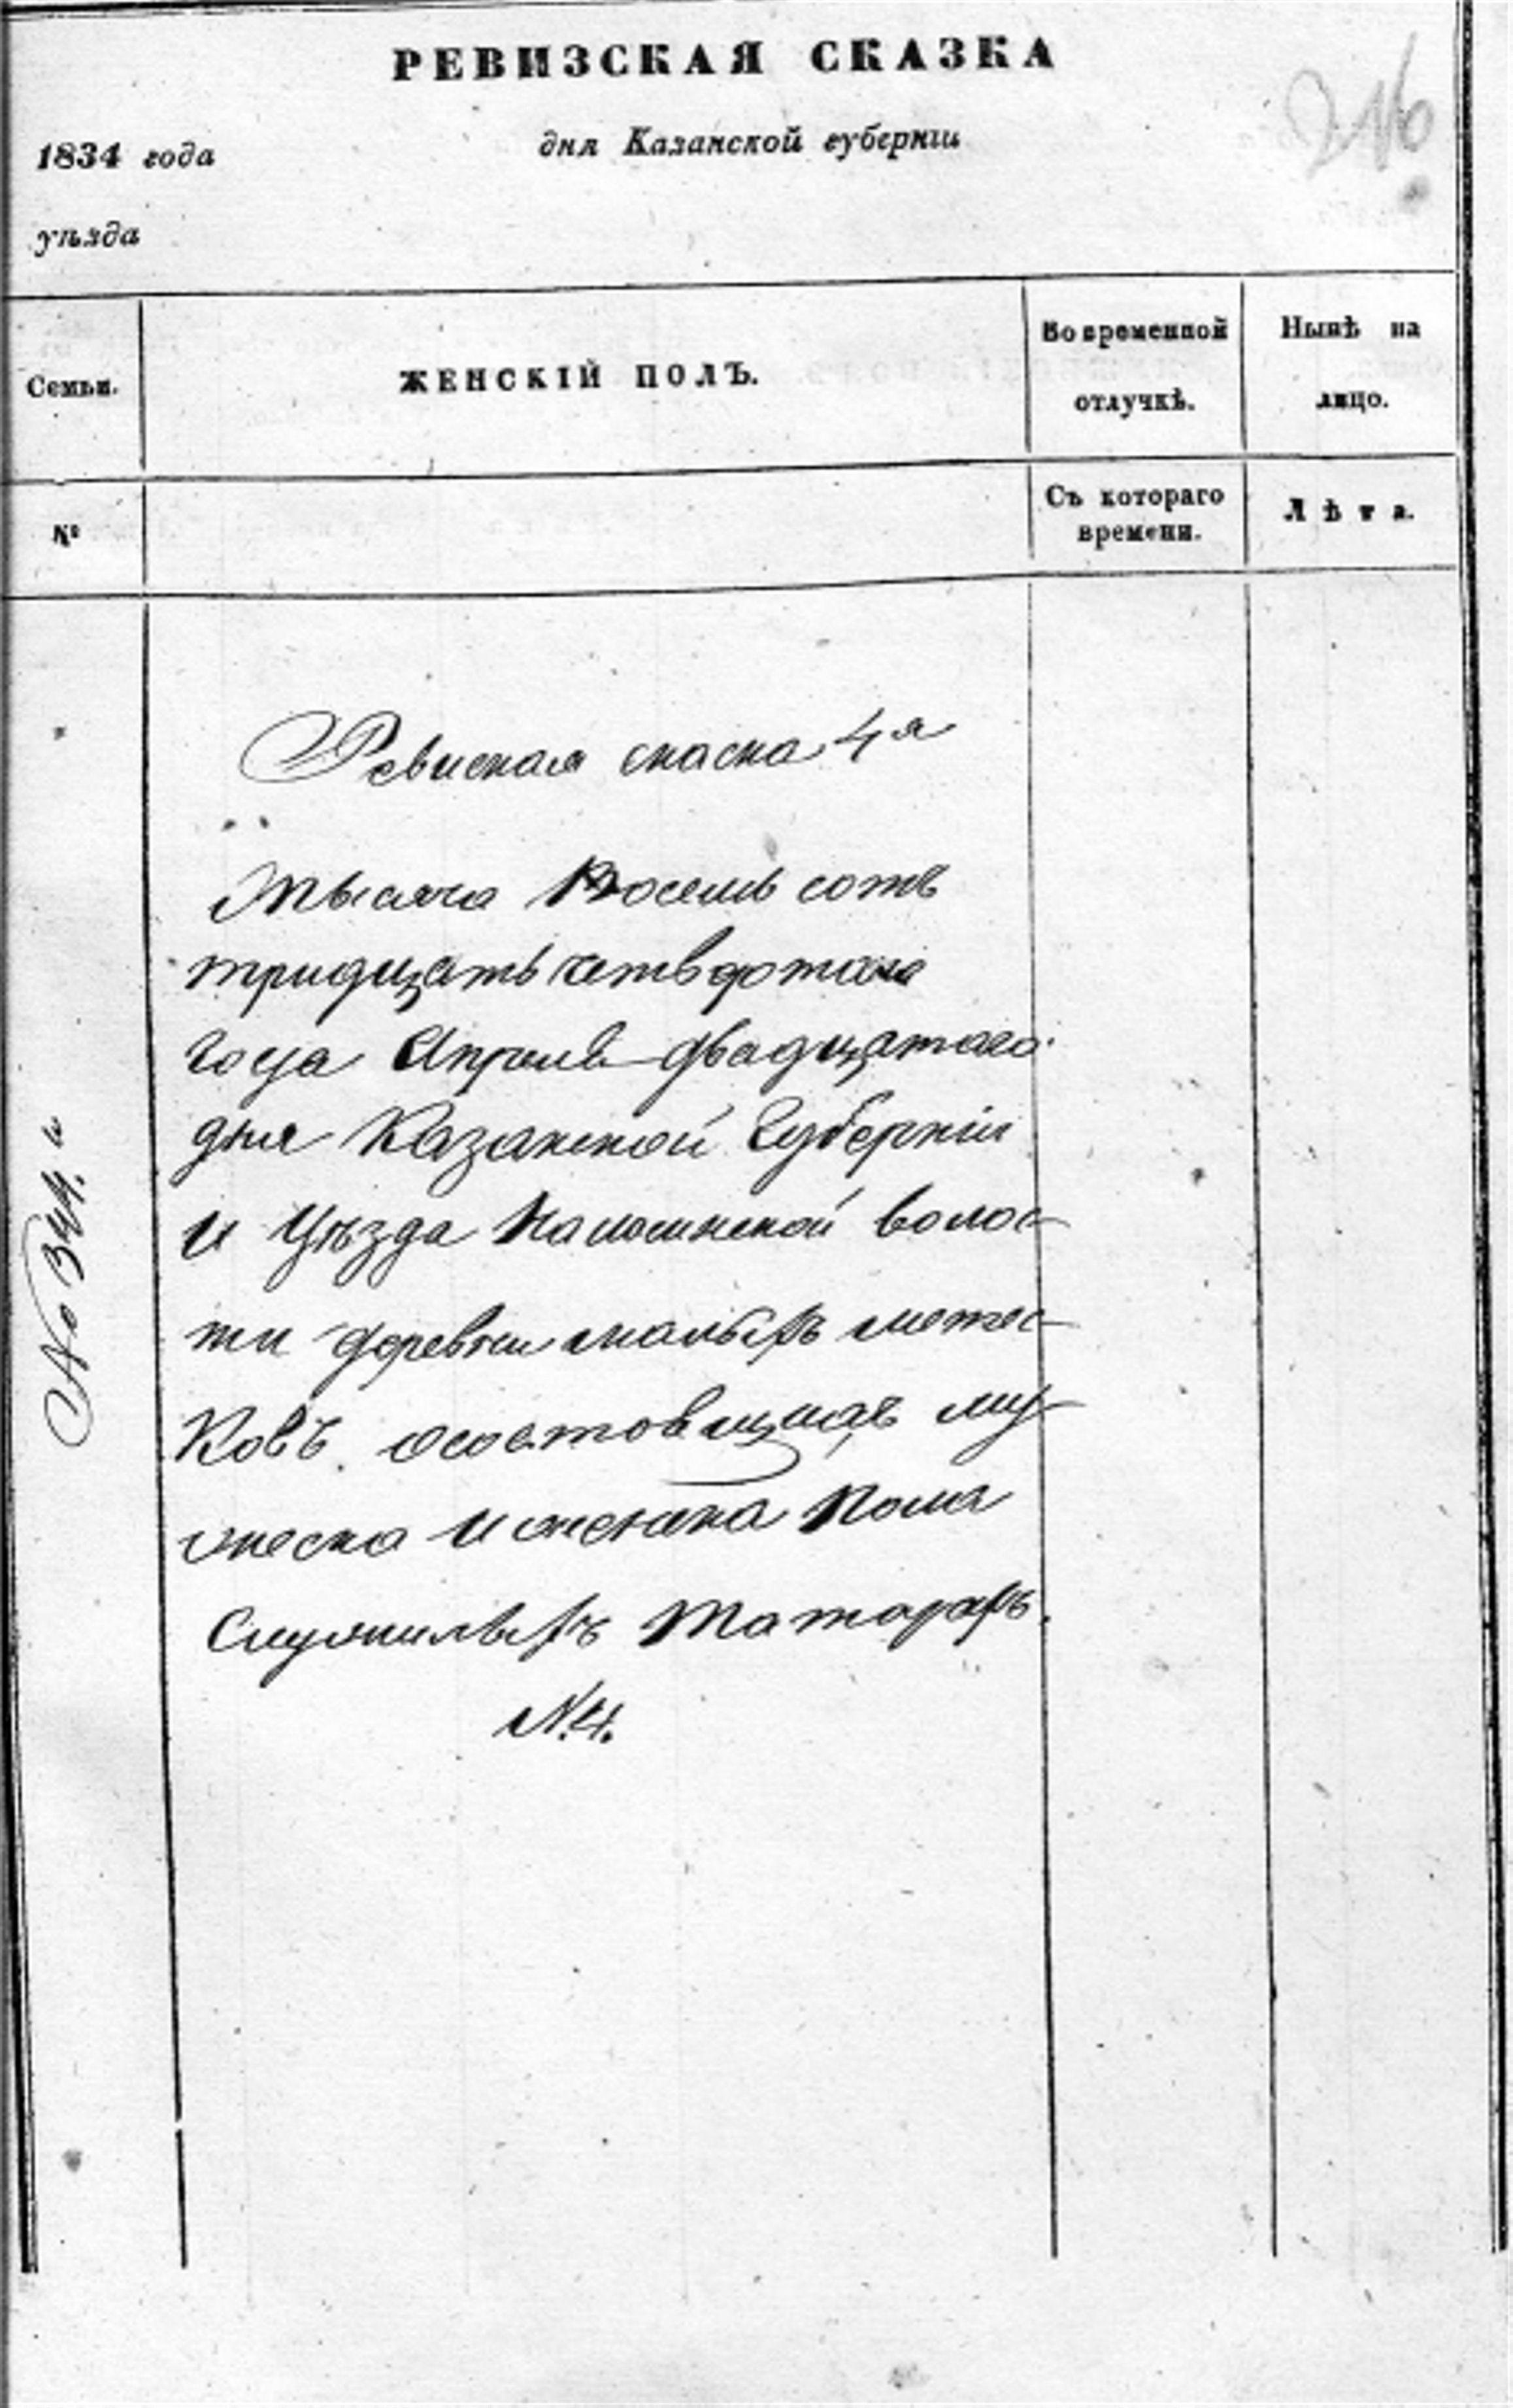 РЕВИЗСКАЯ СКАЗКА
216
1834 года дня Казанской губернiи
уѣзда
Семьи. ЖЕНСКІЙ ПОЛЪ. Во временной отлучкѣ. Нынѣ на лицо.
№ Съ котораго времени. Лѣта.
Ревиская скаска 4я
Тысяча Восемь сотъ
тридцать четвертаго
года Апреля двадцатого
дня Казанской Губернiи
и Уѣзда волос
ти деревни малыхъ метес
ковъ осостовщихъ му
жеска и женска пола
Служилыхъ Татарахъ.
N.4.
№ 344.